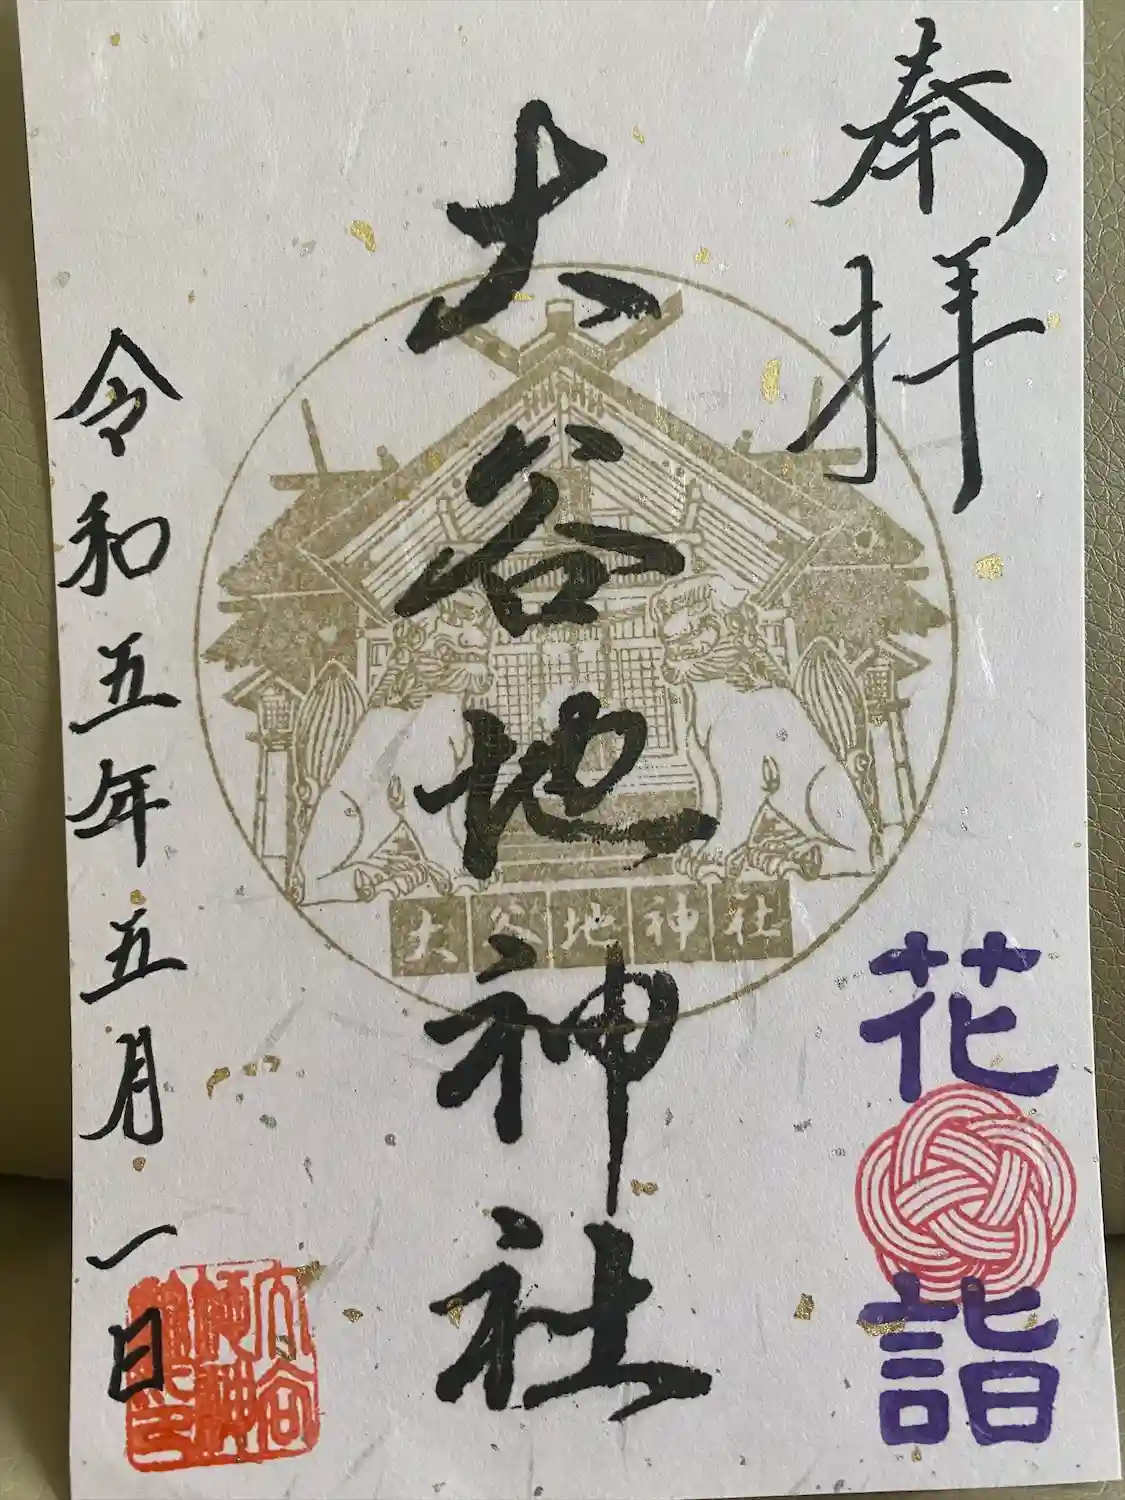 奉拝
花詣
大谷地神社
大谷地神社
令和五年五月一日